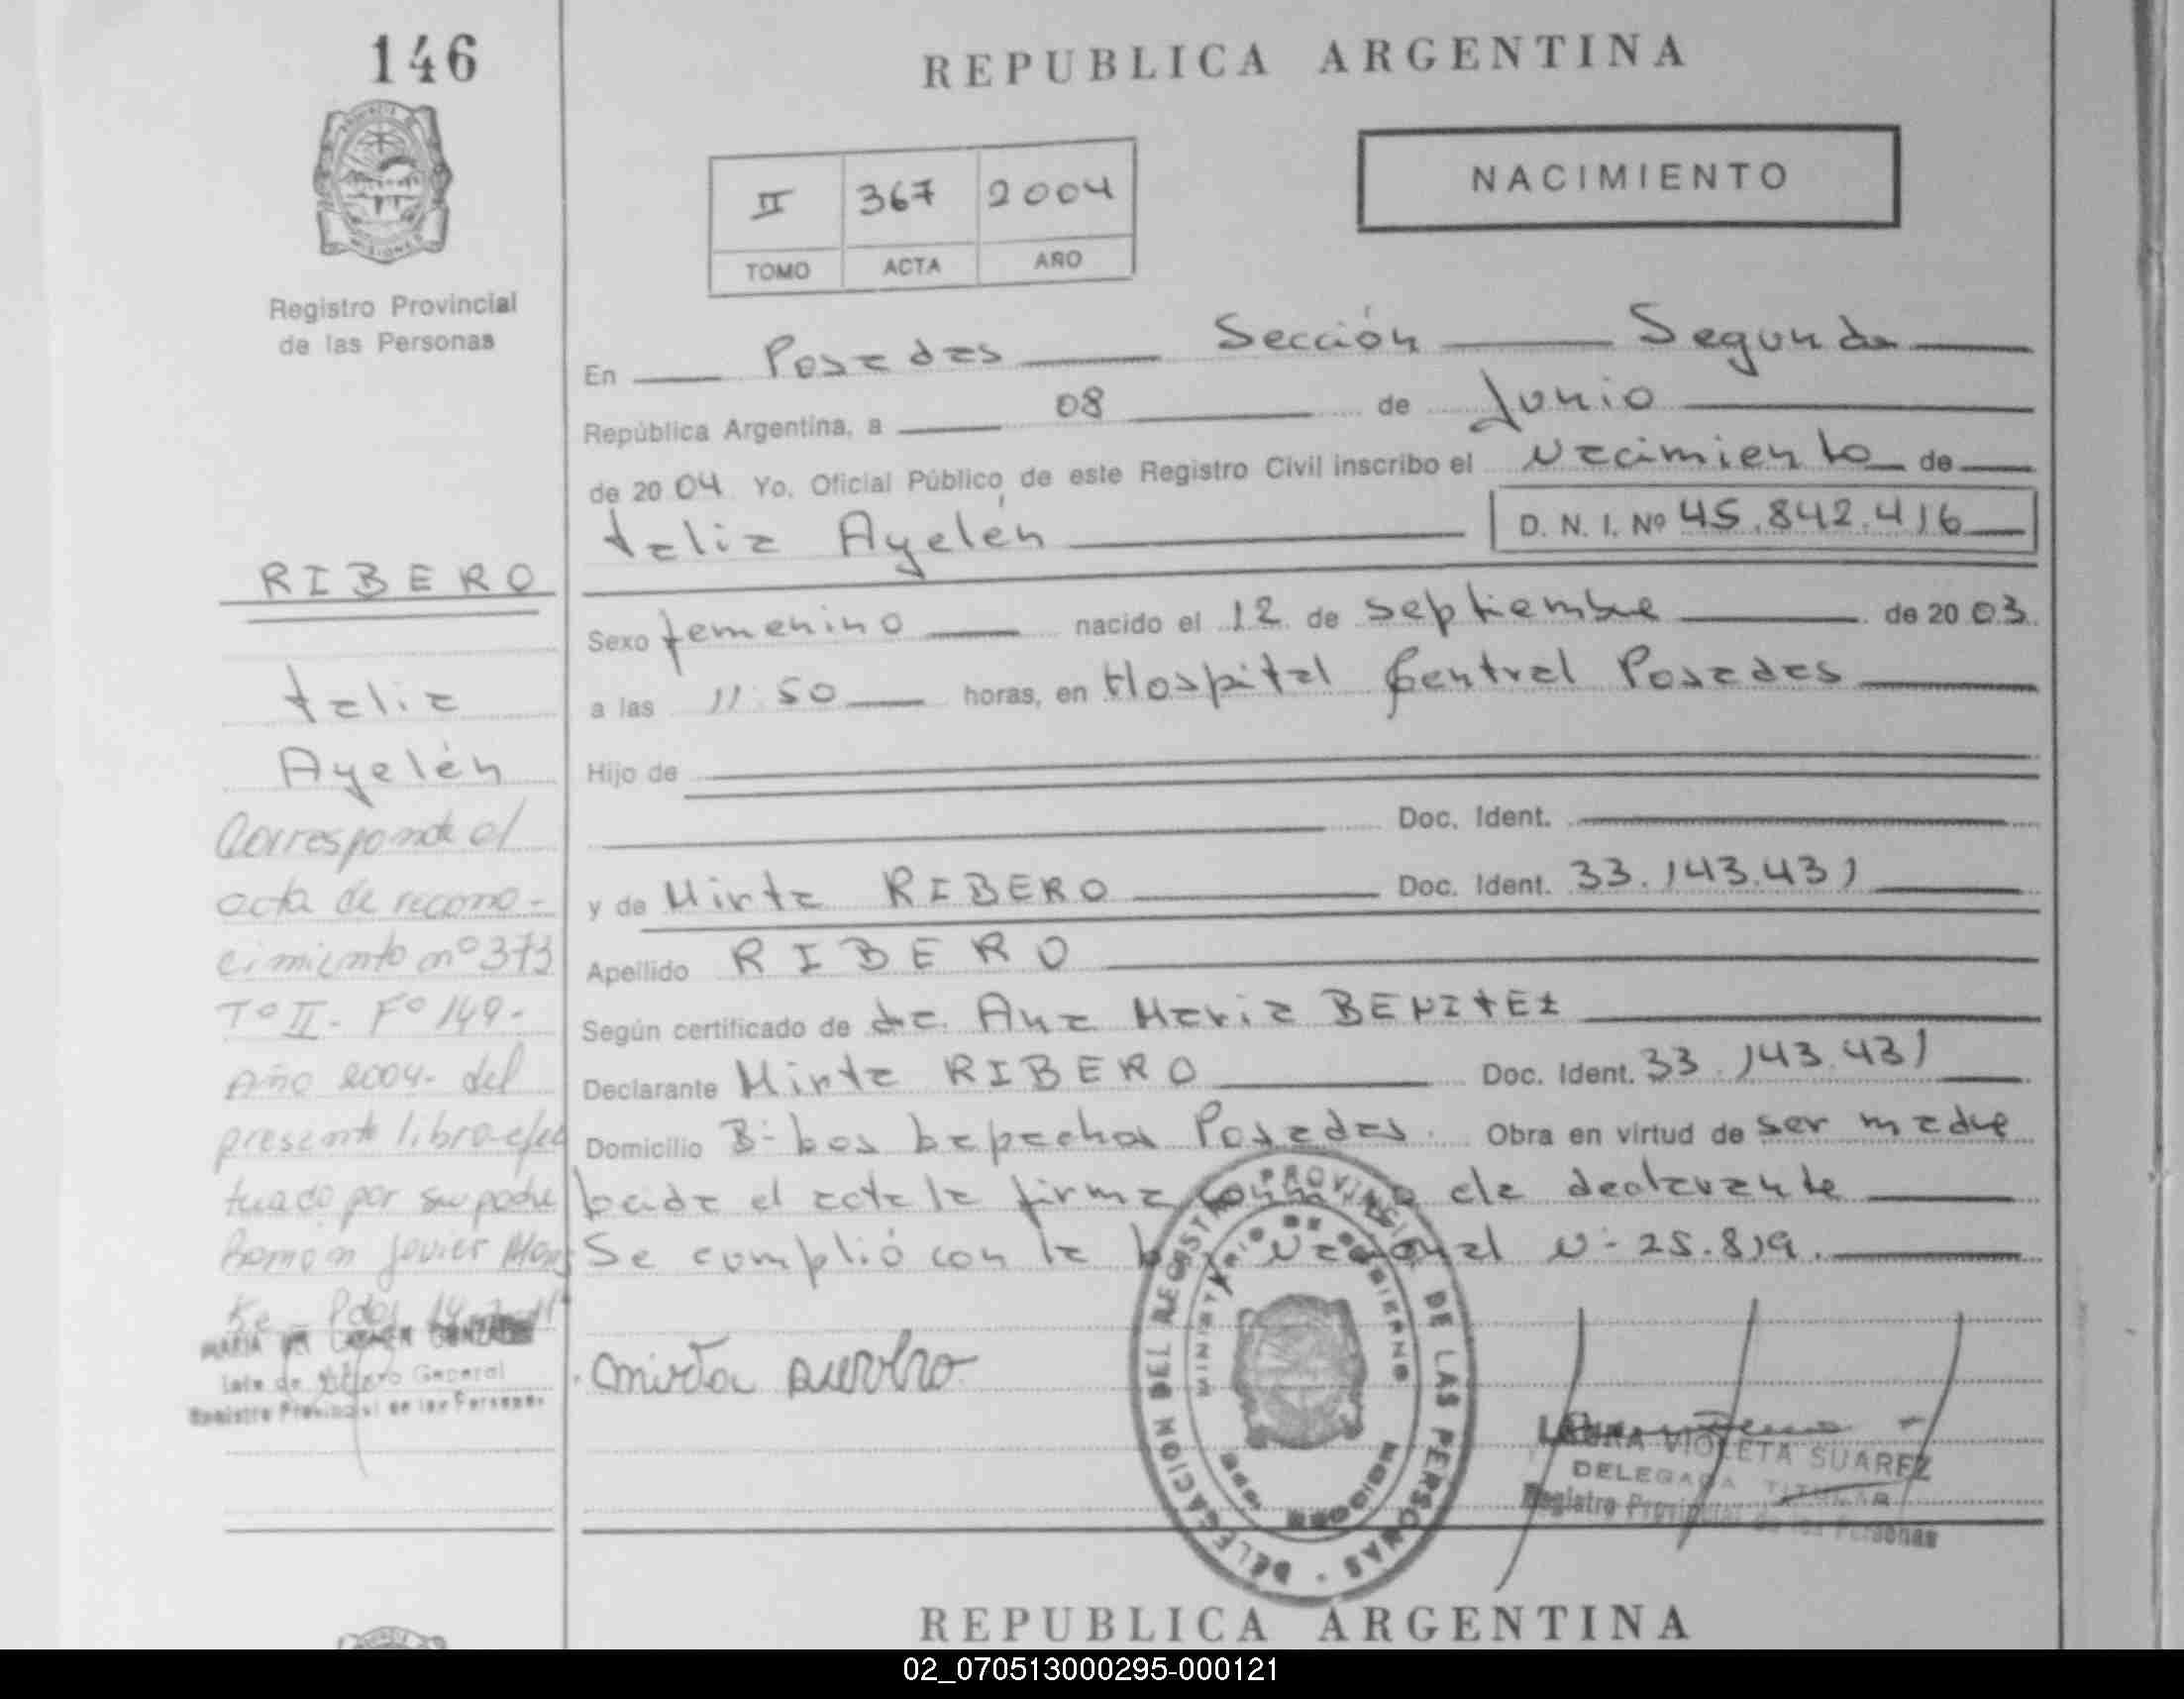 146
REPUBLICA ARGENTINA
NACIMIENTO
II 367 2004
TOMO ACTA AÑO
Registro Provincial
de las Personas
En Posadas Sección Segunda
República Argentina, a 08 de Junio
de 2004 Yo, Oficial Público de este Registro Civil inscribo el Nacimiento de
talia Ayelén D. N. I. Nº 45.842.416
Sexo femenino nacido el 12 de septiembre de 2003
a las 11:50 horas, en Hospital Central Posadas
Hijo de
Doc. Ident.
y de Mirta RIBERO Doc. Ident. 33.143.431
Apellido RIBERO
Según certificado de Ana Maria BENITEZ
Declarante Mirta RIBERO Doc. Ident. 33.143.431
Domicilio Posadas. Obra en virtud de ser madre
el acta la firma la declarante
Se cumplió con la Nacional N- 25.819.
RIBERO
talia
Ayelén
Corresponde al
acta de recono-
cimiento nº 373
Tº II- Fº 149-
Año 2004- del
presente libro-efec
tuado por su padre
Ramon Javier
MARIA DEL CARMEN GONZALEZ
General
Registro Provincial de las Personas
mirta
DELEGACION DEL REGISTRO PROVINCIAL DE LAS PERSONAS
MINISTERIO DE GOBIERNO
MISIONES
LAURA VIOLETA SUAREZ
DELEGADA TITULAR
Registro Provincial de las Personas
REPUBLICA ARGENTINA
02_070513000295-000121